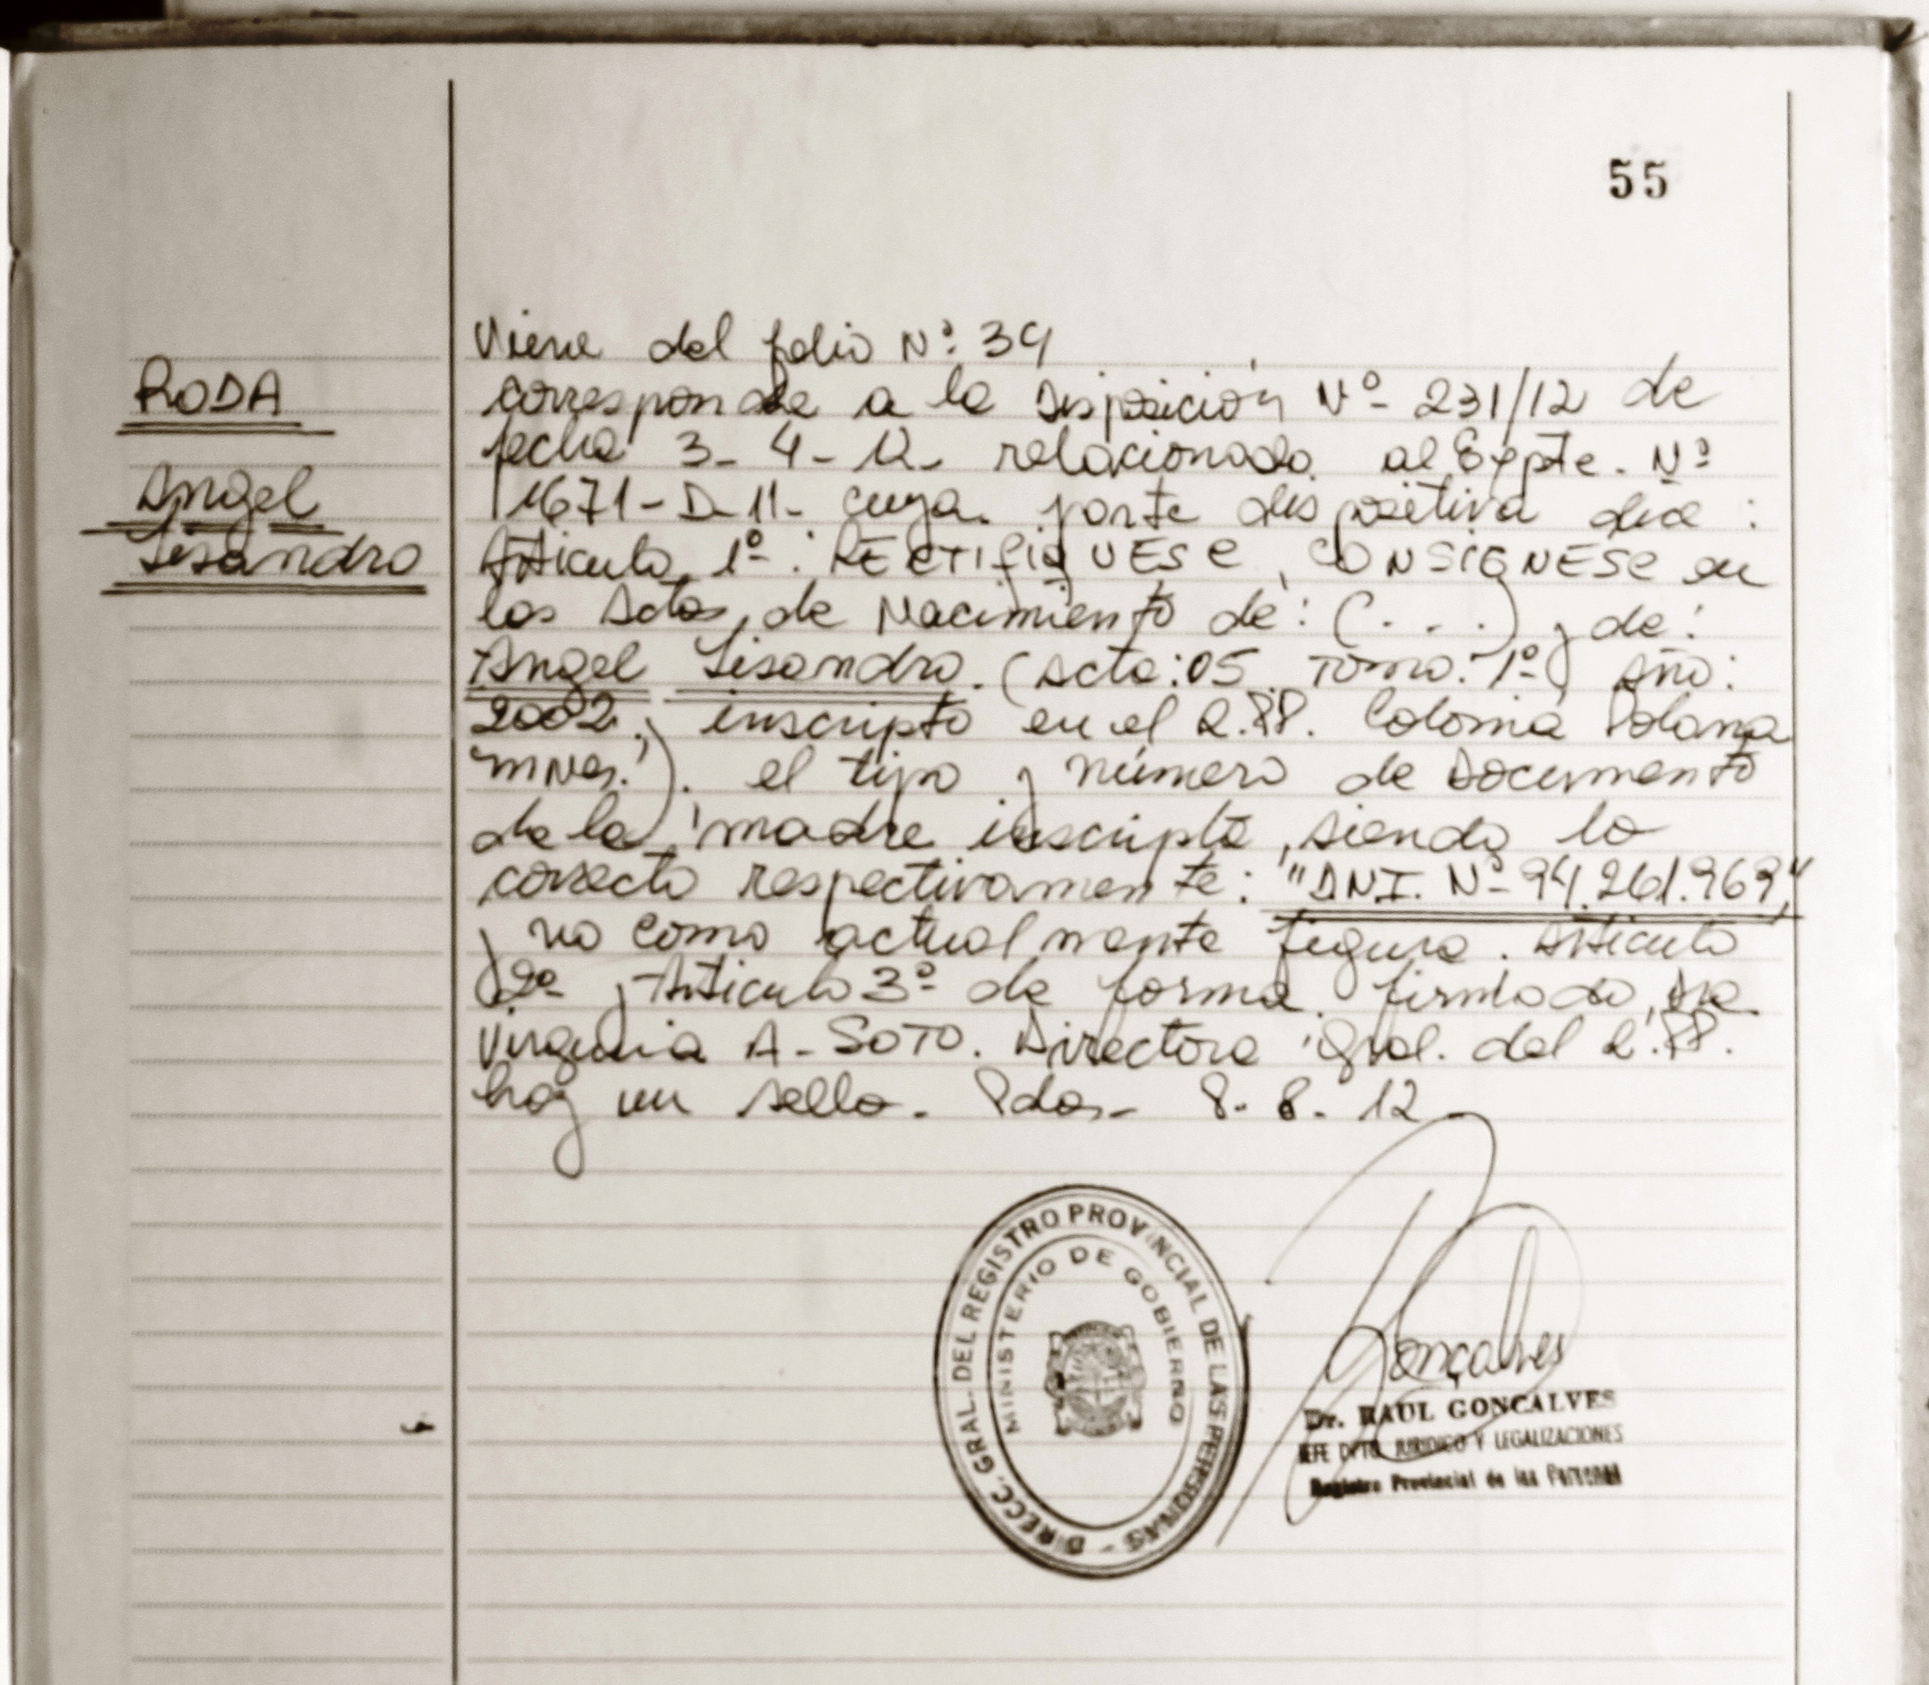 55
RODA
Angel
Lisandro
Viene del folio Nº 34
corresponde a la Disposición Nº 231/12 de
fecha 3-4-12 relacionado al Expte. Nº
1671-D-11- cuya parte dispositiva dice:
Articulo 1º: RECTIFIQUESE, CONSIGNESE en
las Actas de Nacimiento de: (...) y de:
Angel Lisandro. (Acta: 05 Tomo: 1º Año:
2002, inscripto en el R.PP. Colonia Polana
mnes.). el tipo y número de Documento
de la madre inscripta, siendo lo
correcto respectivamente: "DNI. Nº 94.261.969"
y no como actualmente figura. Articulo
2º y Articulo 3º de forma. firmado, Dra
Virginia A. SOTO. Directora Gral. del R.PP.
hay un sello. Pdas- 8.8.12
DIRECC. GRAL. DEL REGISTRO PROVINCIAL DE LAS PERSONAS -
MINISTERIO DE GOBIERNO
Gonçalves
Dr. RAUL GONCALVES
JEFE DPTO. JURIDICO Y LEGALIZACIONES
Registro Provincial de las Personas